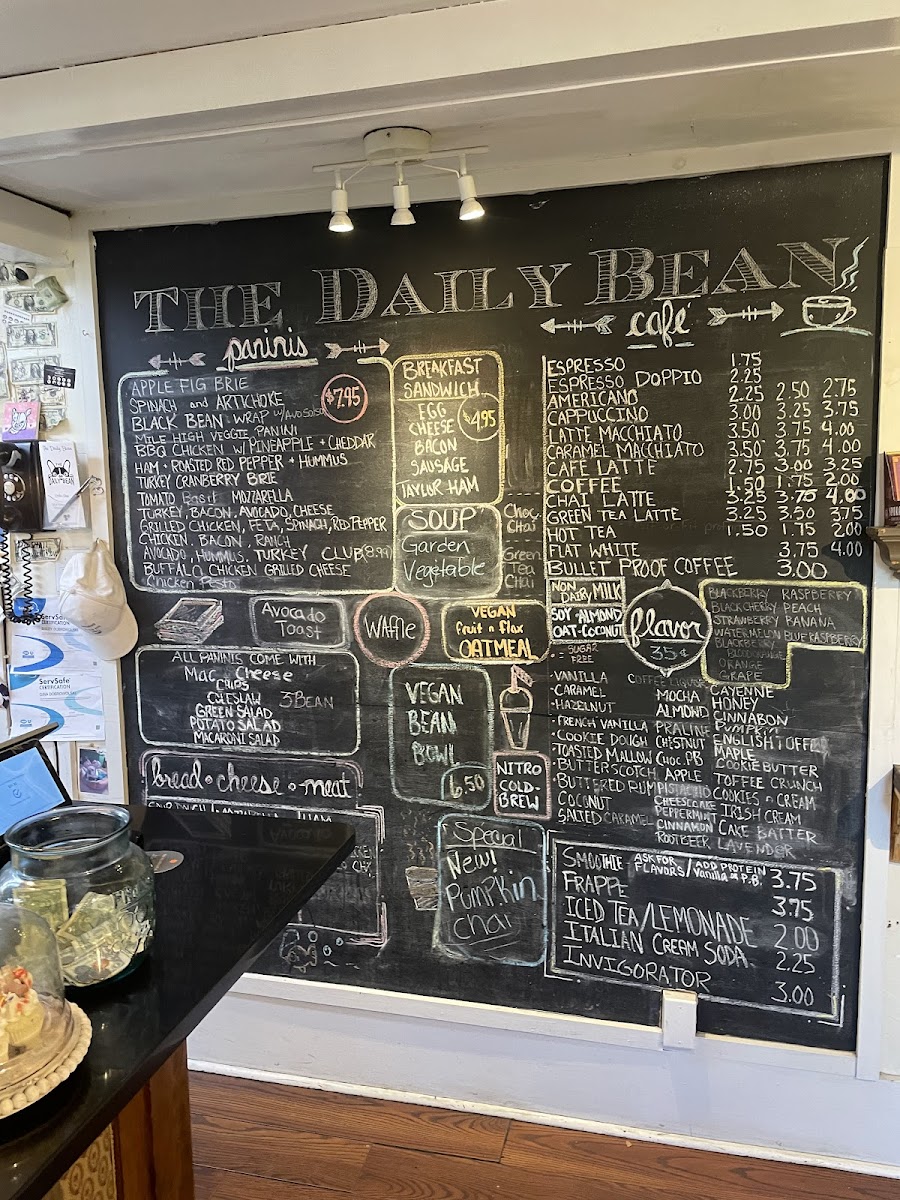 THE DAILY BEAN
paninis
$7.95
APPLE FIG BRIE
SPINACH and ARTICHOKE
BLACK BEAN WRAP w/
MILE HIGH VEGGIE PANINI
BBQ CHICKEN W/PINEAPPLE + CHEDDAR
HAM + ROASTED RED PEPPER + HUMMUS
TURKEY CRANBERRY BRIE
TOMATO Basil MOZZARELLA
TURKEY, BACON, AVOCADO, CHEESE
GRILLED CHICKEN, FETA, SPINACH, RED PEPPER
CHICKEN, BACON, RANCH
AVOCADO, HUMMUS, TURKEY CLUB (8.99)
BUFFALO CHICKEN GRILLED CHEESE
Chicken Pesto
BREAKFAST
SANDWICH
$4.95
EGG
CHEESE
BACON
SAUSAGE
TAYLOR HAM
SOUP
Garden
Vegetable
Choc.
Chai
Green
Tea
Chai
Avocado
Toast
WAffle
VEGAN
fruit n flax
OATMEAL
ALL PANINIS COME WITH
Mac n Cheese
CHIPS
COLESLAW
3 BEAN
GREEN SALAD
POTATO SALAD
MACARONI SALAD
VEGAN
BEAN
BOWL
6.50
NITRO
COLD-
BREW
bread • cheese • meat
HAM
Special
New!
Pumpkin
chai
café
ESPRESSO 1.75
ESPRESSO DOPPIO 2.25
AMERICANO 2.25 2.50 2.75
CAPPUCCINO 3.00 3.25 3.75
LATTE MACCHIATO 3.50 3.75 4.00
CARAMEL MACCHIATO 3.50 3.75 4.00
CAFE LATTE 2.75 3.00 3.25
COFFEE 1.50 1.75 2.00
CHAI LATTE 3.25 3.75 4.00
GREEN TEA LATTE 3.25 3.50 3.75
HOT TEA 1.50 1.75 2.00
FLAT WHITE 3.75 4.00
BULLET PROOF COFFEE 3.00
NON DAIRY MILK
SOY • ALMOND
OAT • COCONUT
flavor
35¢
BLACKBERRY RASPBERRY
BLACKCHERRY PEACH
STRAWBERRY BANANA
WATERMELON BLUE RASPBERRY
BLOOD ORANGE
ORANGE
GRAPE
• SUGAR FREE
• VANILLA
• CARAMEL
• HAZELNUT
• FRENCH VANILLA
• COOKIE DOUGH
• TOASTED MALLOW
• BUTTERSCOTCH
• BUTTERED RUM
COCONUT
SALTED CARAMEL
MOCHA
ALMOND
PRALINE
CHESTNUT
CHOC. PB
APPLE
PISTACHIO
CHEESECAKE
PEPPERMINT
CINNAMON
ROOTBEER
CAYENNE
HONEY
CINNABON
PUMPKIN
ENGLISH TOFFEE
MAPLE
COOKIE BUTTER
TOFFEE CRUNCH
COOKIES n CREAM
IRISH CREAM
CAKE BATTER
LAVENDER
SMOOTHIE ASK FOR FLAVORS / ADD PROTEIN Vanilla P.B. 3.75
FRAPPE 3.75
ICED TEA/LEMONADE 2.00
ITALIAN CREAM SODA 2.25
INVIGORATOR 3.00
The Daily Bean
DAILY BEAN
ServSafe
CERTIFICATION
ServSafe
CERTIFICATION